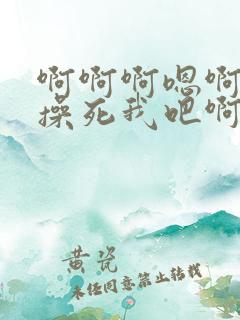 啊啊啊嗯啊
操死我吧啊
黄瓷
未经同意禁止转载